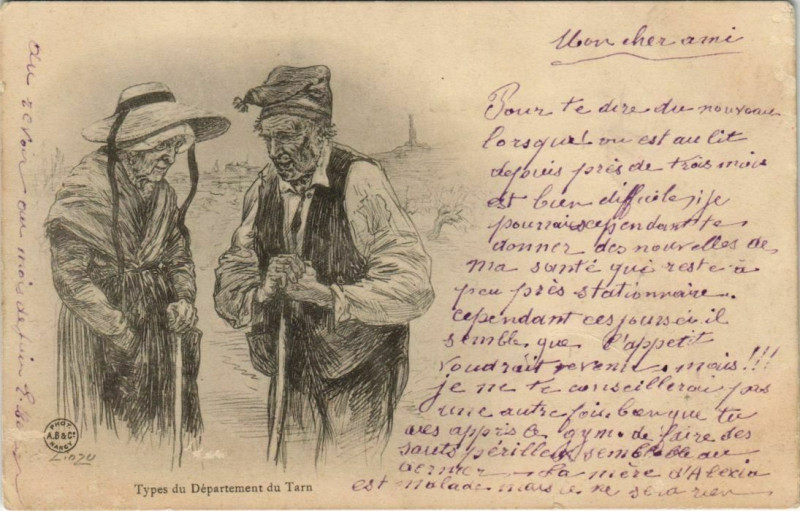 Mon cher ami
Pour te dire du nouveau
lorsqu'on est au lit
depuis près de trois mois
est bien difficile, je
pourrais cependant te
donner des nouvelles de
ma santé qui reste à
peu près stationnaire.
Cependant ces jours-ci il
semble que l'appetit
voudrait revenir mais!!!
je ne te conseillerai pas
une autre fois bien que tu
aies appris le gym. de faire des
sauts périlleux semblable au
dernier. La mère d'Alexia
est malade mais ce ne sera rien
au mois de juin
PHOT
A.B & Cie
NANCY
Types du Département du Tarn